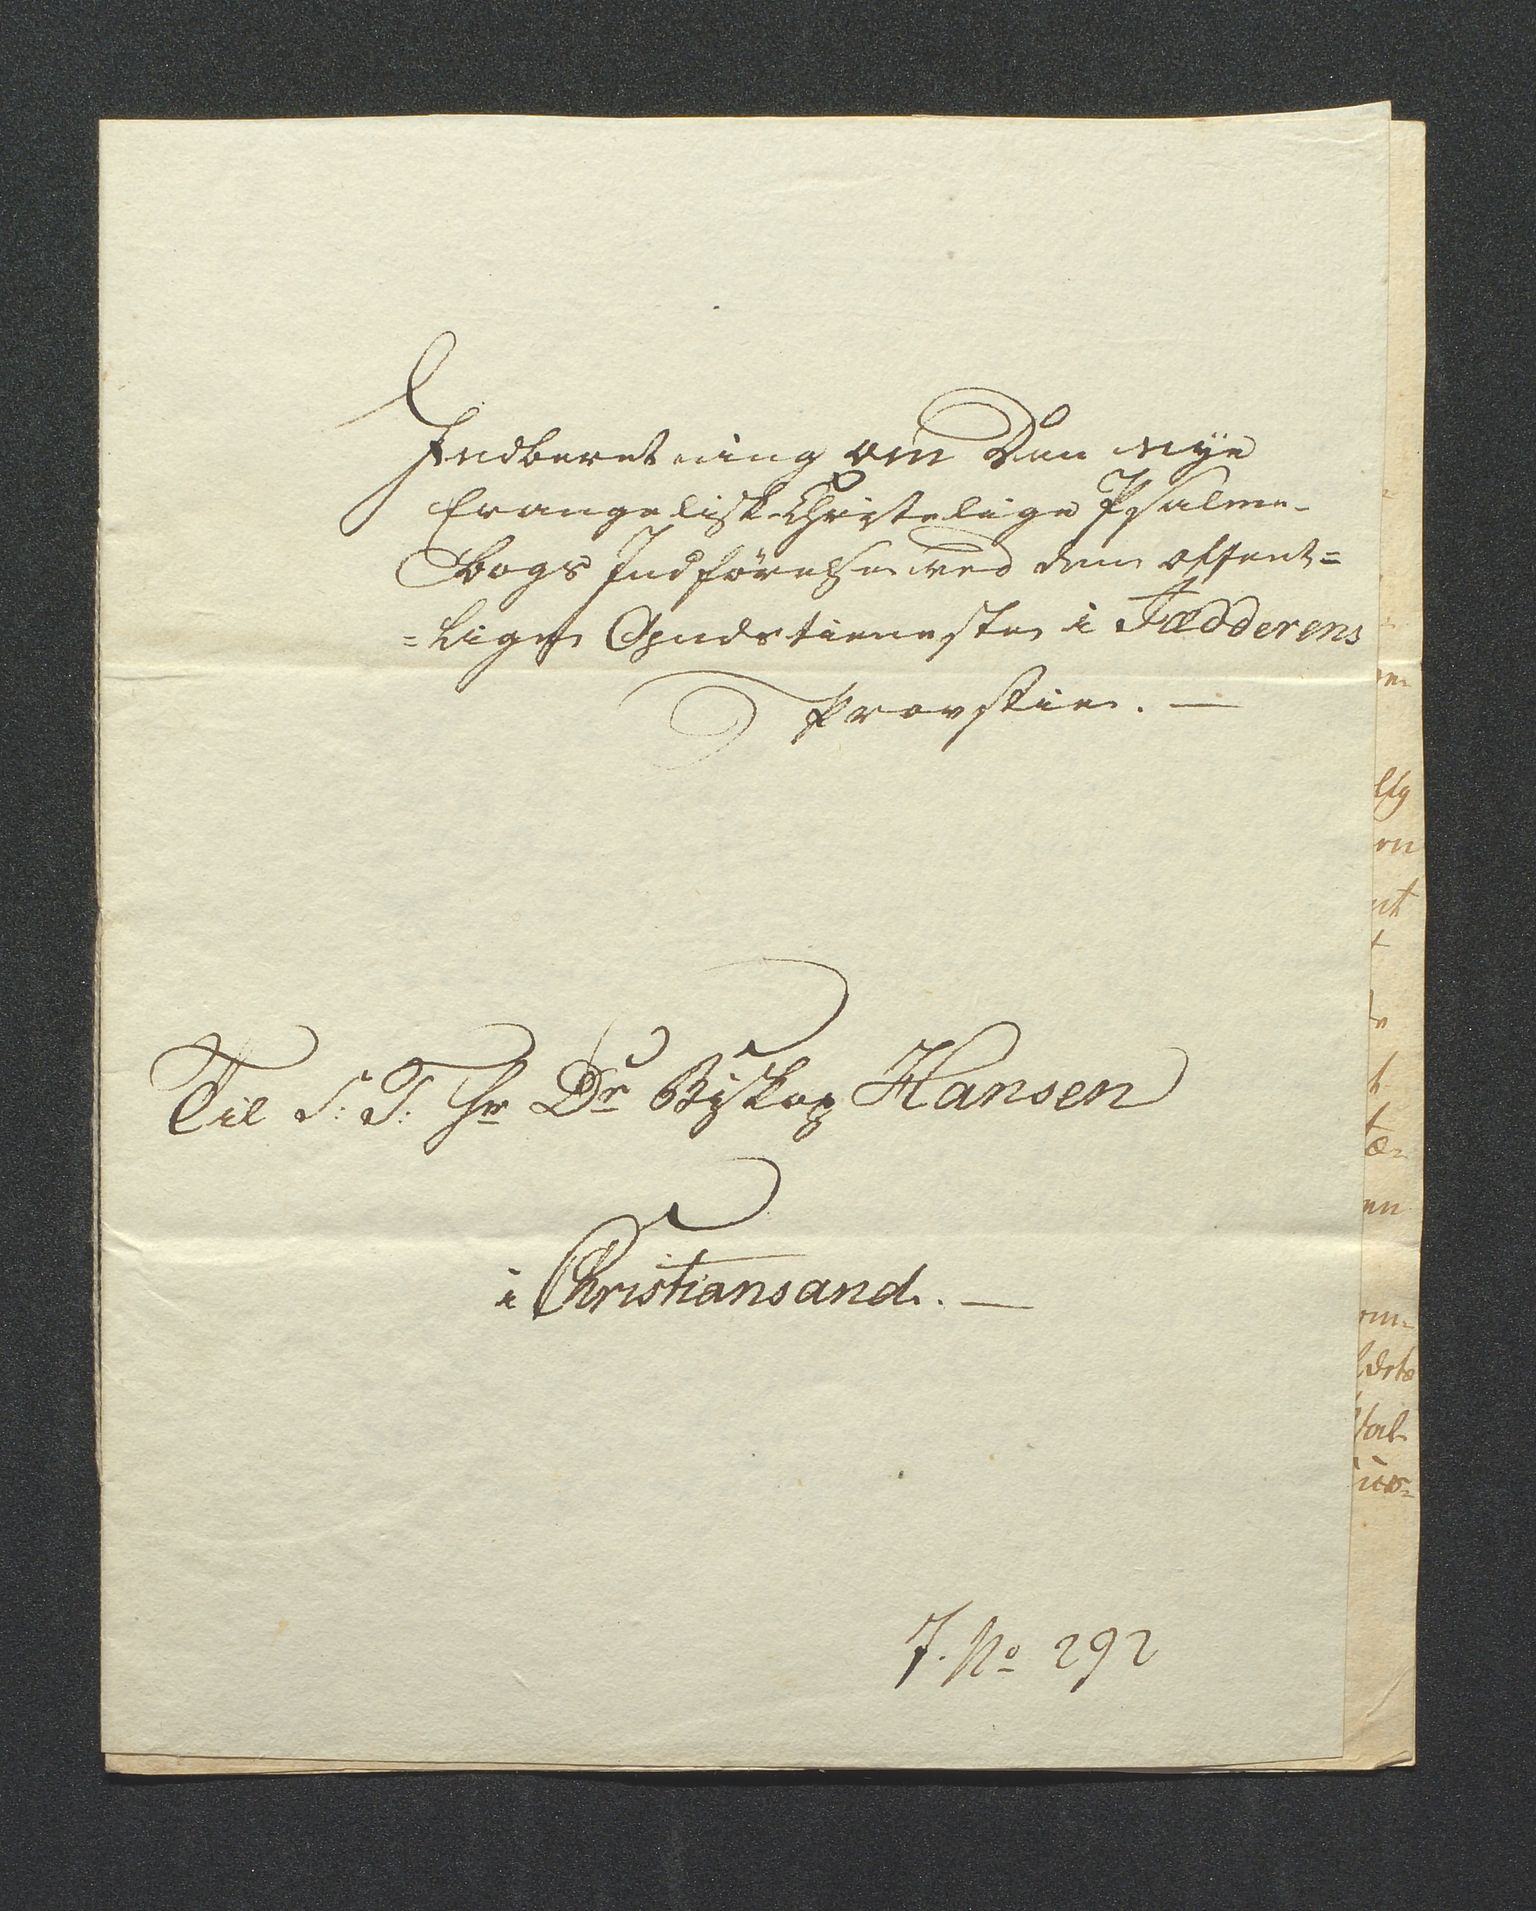 Indberetning om Den nye
Evangelisk-Christelige Psalme-
bogs Indförelse ved den offent=
=lige Gudstieneste i Fædderens
Provstie. —
Til S. T. Hr Dr Biskop Hansen
i Christiansand. —
J. No 292